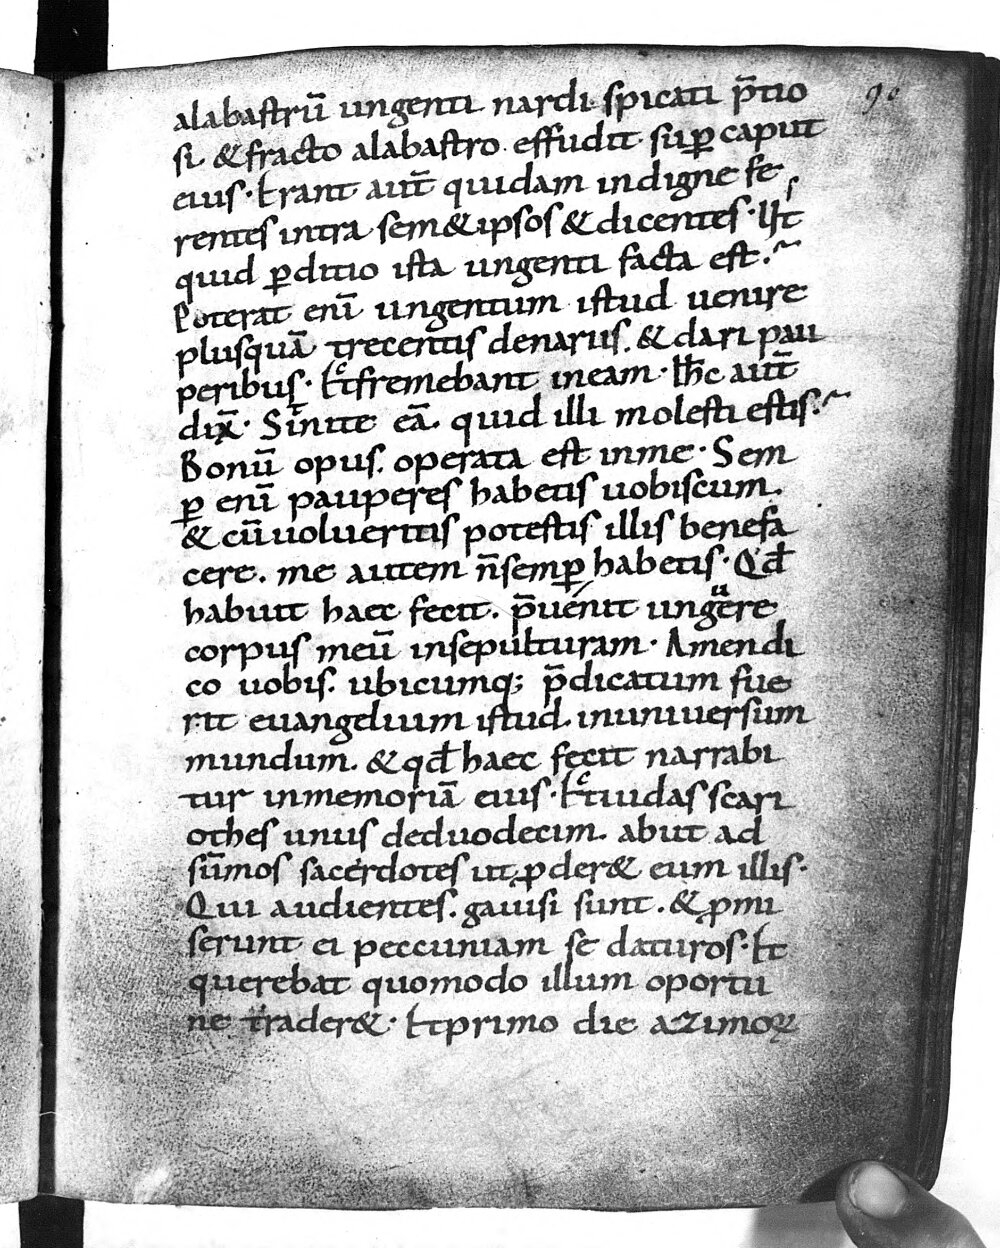 90
alabastrū ungenti nardi spicati p̄tio
si. & fracto alabastro effudit sup̱ caput
eius. Erant aut̄ quidam indigne fe
rentes intra sem&ipsos & dicentes. Ut
quid p̱ditio ista ungenti facta est.
Poterat enī ungentum istud uenire
plusquā trecentis denariis. & dari pau
peribus. Et fremebant in eam. Ihc aut̄
dix̄. Sinite eā. quid illi molesti estis.
Bonū opus. operata est in me. Sem
p̱ enī pauperes habetis uobiscum.
& cū uolueritis potestis illis benefa
cere. me autem n̄ semp̱ habetis. Qđ
habuit haec fecit. p̄uenit unguere
corpus meū in sepulturam. Amen di
co uobis. ubicumq; p̄dicatum fue
rit euangelium istud. in uniuersum
mundum. & qđ haec fecit narrabi
tur in memoriā eius. Et iudas scari
othes unus de duodecim. abiit ad
sūmos sacerdotes ut p̱der& eum illis.
Qui audientes. gauisi sunt. & ꝓmi
serunt ei peccuniam se daturos. Et
querebat quomodo illum oportu
ne trader&. Et primo die azimoꝝ